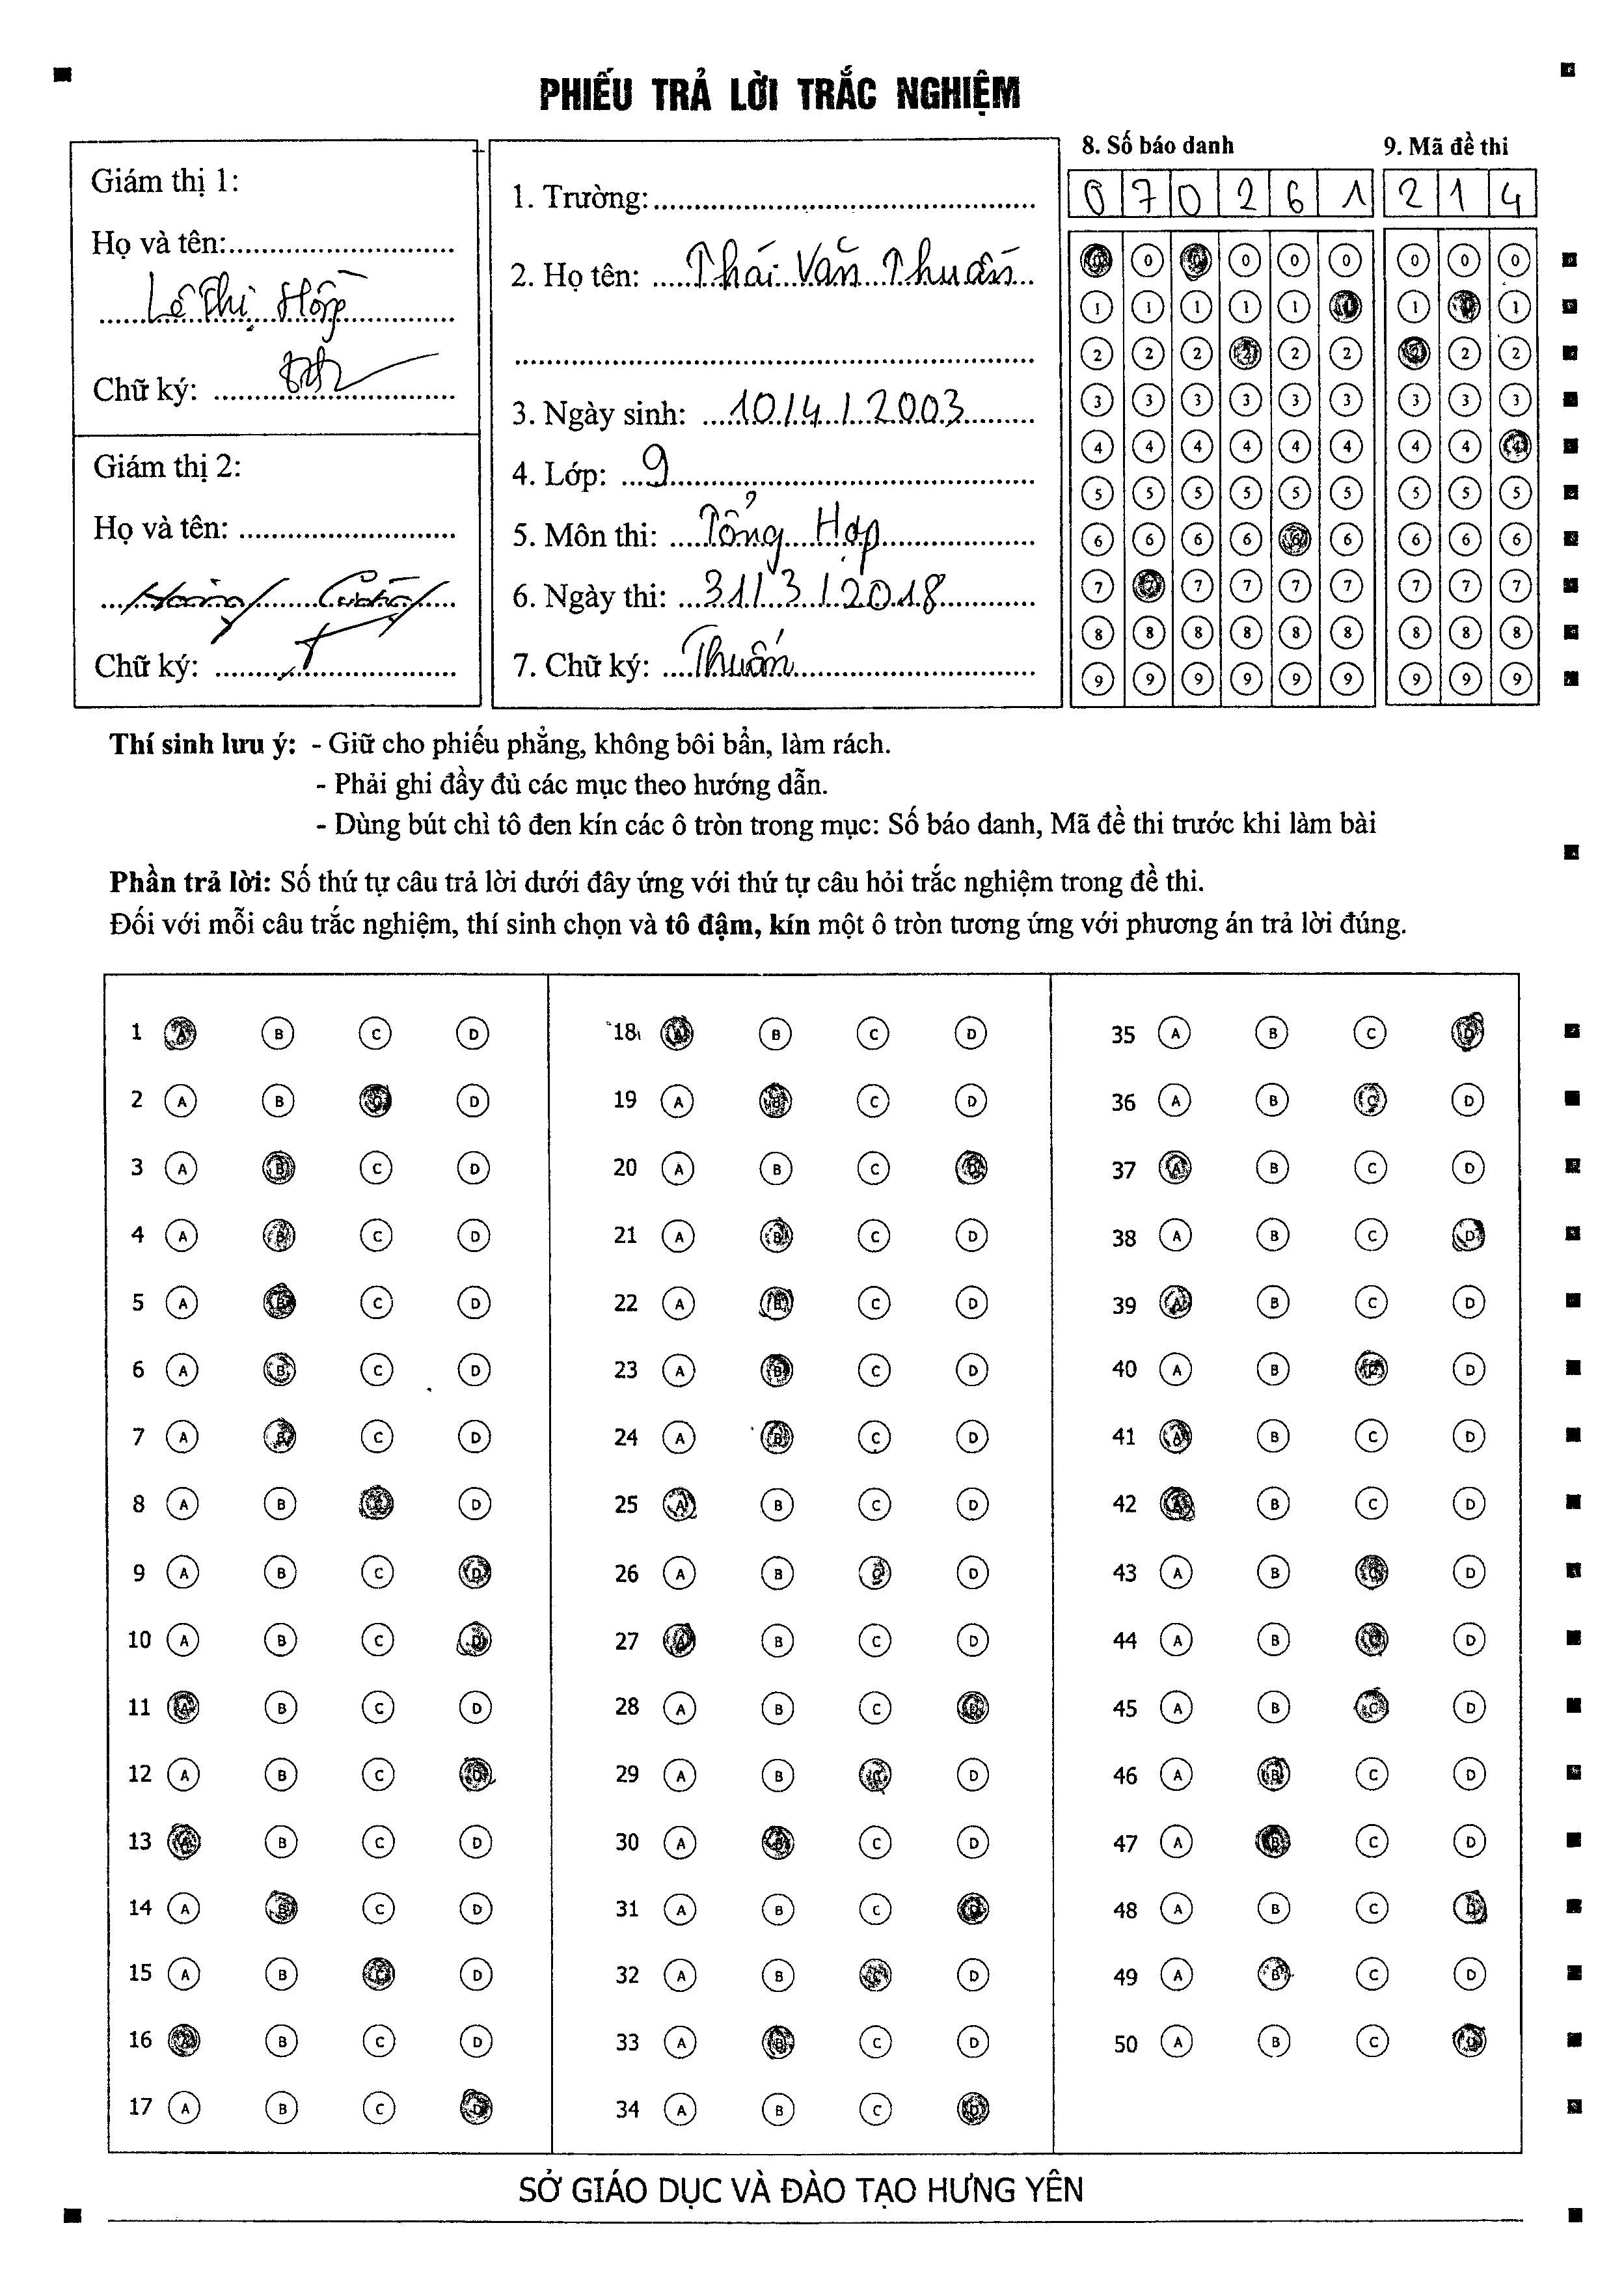 PHIẾU TRẢ LỜI TRẮC NGHIỆM
Giám thị 1:
Họ và tên:..............................
Lê Thị Hớp
Chữ ký: ..............................
Giám thị 2:
Họ và tên: ..............................
Hoàng
Chữ ký: ..............................
1. Trường:..............................
2. Họ tên: Thái Văn Thuấn
3. Ngày sinh: 10/4/2003
4. Lớp: 9
5. Môn thi: Tổng Hợp
6. Ngày thi: 31/3/2018
7. Chữ ký: Thuấn
8. Số báo danh
0 7 0 2 6 1
0 0 0 0 0 0
1 1 1 1 1 1
2 2 2 2 2 2
3 3 3 3 3 3
4 4 4 4 4 4
5 5 5 5 5 5
6 6 6 6 6 6
7 7 7 7 7 7
8 8 8 8 8 8
9 9 9 9 9 9
9. Mã đề thi
2 1 4
0 0 0
1 1 1
2 2 2
3 3 3
4 4 4
5 5 5
6 6 6
7 7 7
8 8 8
9 9 9
Thí sinh lưu ý: - Giữ cho phiếu phẳng, không bôi bẩn, làm rách.
- Phải ghi đầy đủ các mục theo hướng dẫn.
- Dùng bút chì tô đen kín các ô tròn trong mục: Số báo danh, Mã đề thi trước khi làm bài
Phần trả lời: Số thứ tự câu trả lời dưới đây ứng với thứ tự câu hỏi trắc nghiệm trong đề thi.
Đối với mỗi câu trắc nghiệm, thí sinh chọn và tô đậm, kín một ô tròn tương ứng với phương án trả lời đúng.
1 A B C D
2 A B C D
3 A B C D
4 A B C D
5 A B C D
6 A B C D
7 A B C D
8 A B C D
9 A B C D
10 A B C D
11 A B C D
12 A B C D
13 A B C D
14 A B C D
15 A B C D
16 A B C D
17 A B C D
18 A B C D
19 A B C D
20 A B C D
21 A B C D
22 A B C D
23 A B C D
24 A B C D
25 A B C D
26 A B C D
27 A B C D
28 A B C D
29 A B C D
30 A B C D
31 A B C D
32 A B C D
33 A B C D
34 A B C D
35 A B C D
36 A B C D
37 A B C D
38 A B C D
39 A B C D
40 A B C D
41 A B C D
42 A B C D
43 A B C D
44 A B C D
45 A B C D
46 A B C D
47 A B C D
48 A B C D
49 A B C D
50 A B C D
SỞ GIÁO DỤC VÀ ĐÀO TẠO HƯNG YÊN